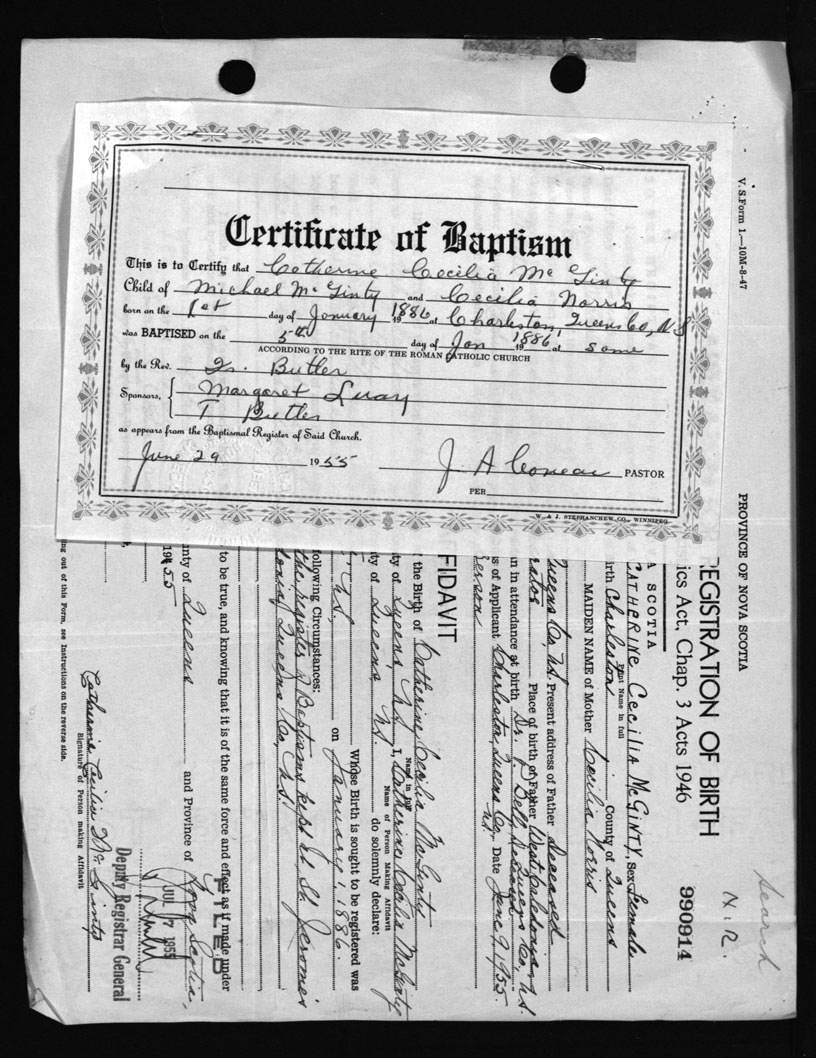 Certificate of Baptism
This is to Certify that Catherine Cecilia McGinty
Child of Michael McGinty and Cecilia Norris
born on the 1st day of January 1886 at Charleston, Queens Co, N.S
was BAPTISED on the 5th day of Jan 1886 at same
ACCORDING TO THE RITE OF THE ROMAN CATHOLIC CHURCH
by the Rev. Fr. Butler
Sponsors, Margaret
T Butler
as appears from the Baptismal Register of Said Church.
June 29 1955 J. A Comeau PASTOR
PER
W. & J. STEPHANCHEW CO., WINNIPEG
V. S. Form 1.—10M-8-47
PROVINCE OF NOVA SCOTIA
REGISTRATION OF BIRTH
ics Act, Chap. 3 Acts 1946
990914
N.R.
Search
A SCOTIA
CATHERINE Cecilia McGINTY, Sex Female
Print Name in full
irth Charleston County of Queens
MAIDEN NAME of Mother Cecilia Norris
Queens Co, N.S. Present address of Father Deceased
Place of birth of Father West Caledonia,
Queens Co, N.S.
an in attendance at birth Dr. Bell, Deceased
s of Applicant Charleston, Queens Co, N.S. Date June 9, 1955.
erson
FIDAVIT
the Birth of Catherine Cecilia McGinty
Name in full
ty of Queens, N.S. I, Catherine Cecilia McGinty
Name of Person Making Affidavit
ty of Queens, N.S. do solemnly declare:
Whose Birth is sought to be registered was
N.S., on January 1, 1886.
following Circumstances:
the register of Baptisms kept at St. Jerome's
Queens Co, N.S.
to be true, and knowing that it is of the same force and effect as if made under
FILED
unty of Queens and Province of Nova Scotia,
1955
JUL 7 1955
Deputy Registrar General
Catherine Cecilia McGinty
Signature of Person making Affidavit
ng out of this Form, see Instructions on the reverse side.